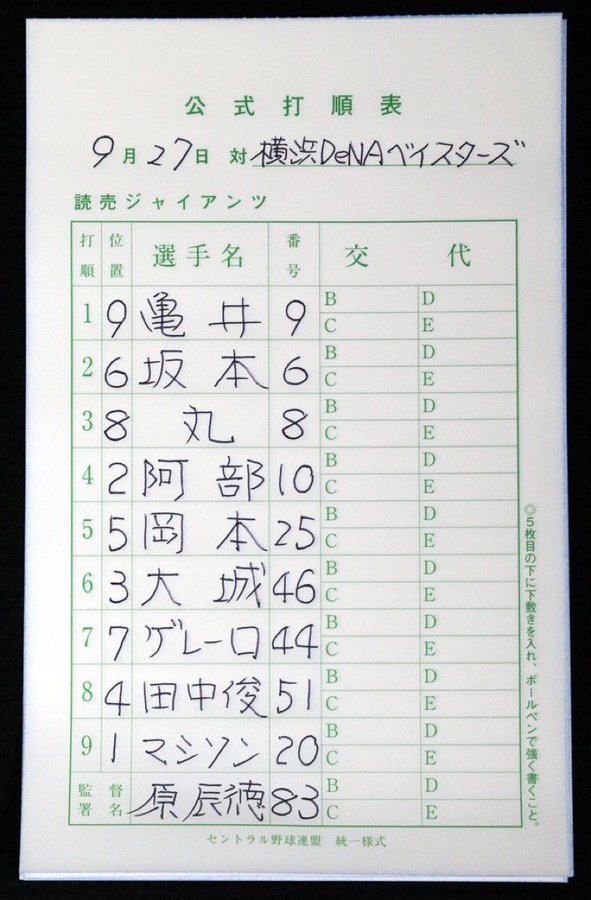 公式打順表
9月27日 対 横浜DeNAベイスターズ
読売ジャイアンツ
打順 位置 選手名 番号 交代
1 9 亀井 9 B D C E
2 6 坂本 6 B D C E
3 8 丸 8 B D C E
4 2 阿部 10 B D C E
5 5 岡本 25 B D C E
6 3 大城 46 B D C E
7 7 ゲレーロ 44 B D C E
8 4 田中俊 51 B D C E
9 1 マシソン 20 B D C E
監督署名 原辰徳 83 B D C E
セントラル野球連盟 統一様式
◎5枚目の下に下敷きを入れ、ボールペンで強く書くこと。